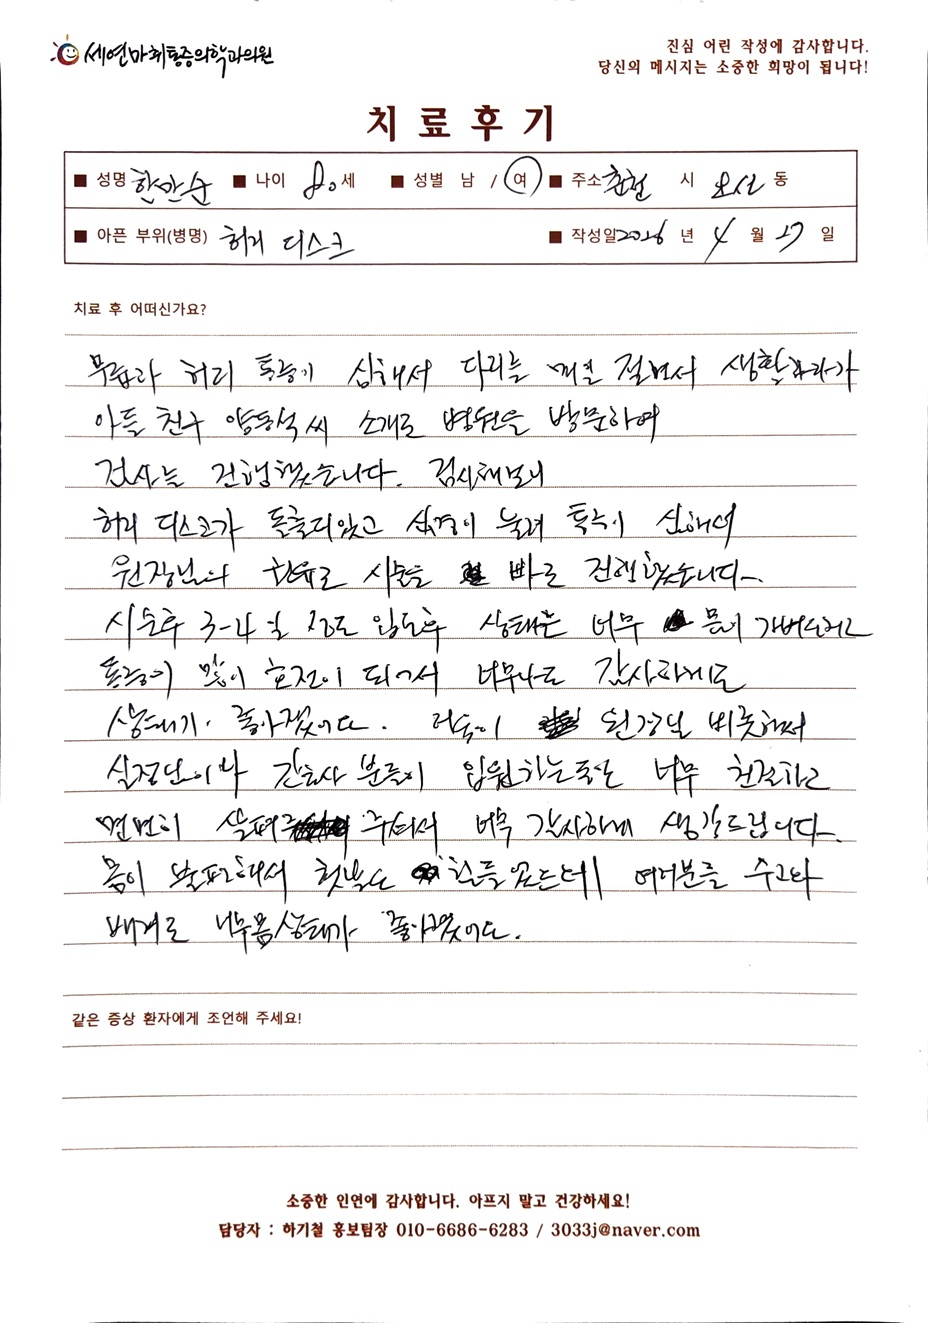 세연마취통증의학과의원
진심 어린 작성에 감사합니다.
당신의 메시지는 소중한 희망이 됩니다!
치료후기
■ 성명 한만순 ■ 나이 80세 ■ 성별 남 / 여 ■ 주소 춘천 시 동
■ 아픈 부위(병명) 허리 디스크 ■ 작성일 2026 년 4 월 27 일
치료 후 어떠신가요?
무릎과 허리 통증이 심해서 다리를 절면서 생활하다가
아들 친구 양동석 씨 소개로 병원을 방문하여
검사를 진행했습니다. 검사해보니
허리 디스크가 돌출되있고 신경이 눌려 통증이 심해여
원장님의 권유로 시술을 바로 진행했습니다.
시술후 3-4일 정도 입원후 상태는 너무 몸이 가벼워지고
통증이 많이 호전이 되어서 너무나도 감사하게도
상태가 좋아졌이다. 더욱이 원장님 비롯해서
실장님이나 간호사 분들이 입원하는동안 너무 친절하고
면면히 살펴 주셔서 너무 감사하게 생각드립니다.
몸이 불편해서 힘들었는데 여러분들 수고와
배려로 너무 몸상태가 좋아졌이다.
같은 증상 환자에게 조언해 주세요!
소중한 인연에 감사합니다. 아프지 말고 건강하세요!
담당자 : 하기철 홍보팀장 010-6686-6283 / 3033j@naver.com